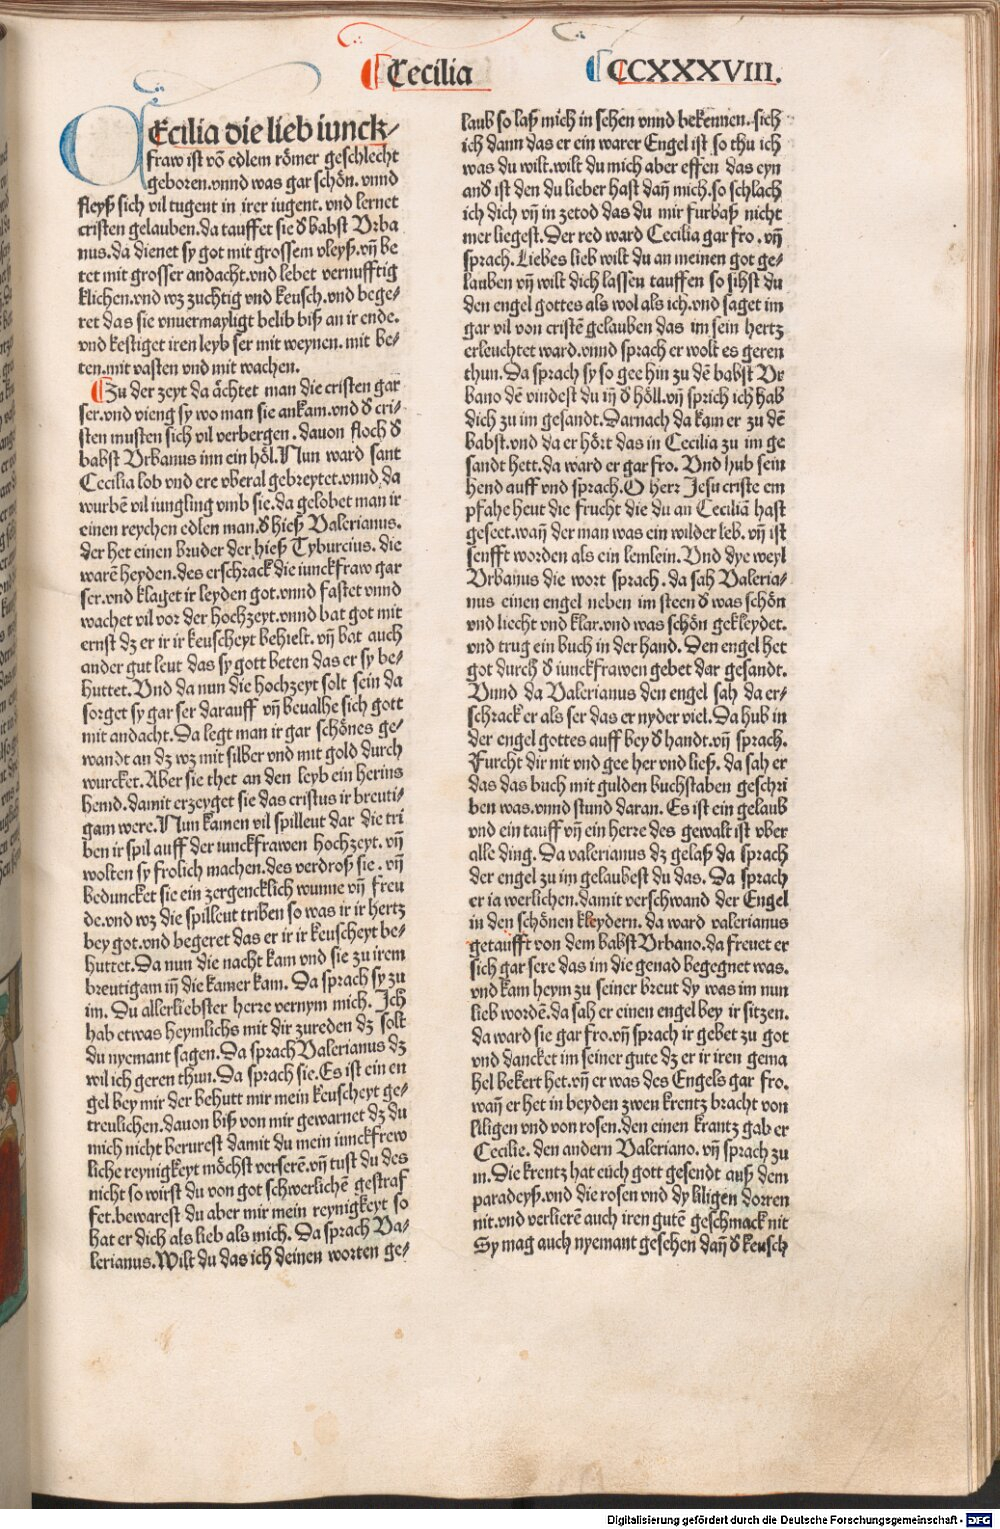 Cecilia
CCXXXVIII.
CEcilia die lieb iunck⸗
fraw ist võ edlem römer geschlecht
geboren.vnnd was gar schön. vnnd
fleyß sich vil tugent in irer iugent. vnd lernet
cristen gelauben.da tauffet sie d̕ babst Vrba
nus.da dienet sy got mit grossem vleyß.vñ be
tet mit grosser andacht.vnd lebet vernufftig
klichen.vnd wz zuchtig vnd keusch.vnd bege⸗
ret das sie vnuermayligt belib biß an ir ende.
vnd kestiget iren leyb ser mit weynen. mit be⸗
ten.mit vasten vnd mit wachen.
Zu der zeyt da ächtet man die cristen gar
ser.vnd vieng sy wo man sie ankam.vnd d̕ cri⸗
sten musten sich vil verbergen. dauon floch d̕
babst Vrbanus inn ein höl. Nun ward sant
Cecilia lob vnd ere vberal gebreytet.vnnd da
wurbẽ vil iungling vmb sie.da gelobet man ir
einen reychen edlen man.d̕ hieß Valerianus.
der het einen bruder der hieß Tyburcius. die
warẽ heyden.des erschrack die iunckfraw gar
ser.vnd klaget ir leyden got.vnnd fastet vnnd
wachet vil vor der hochzeyt.vnnd bat got mit
ernst dz er ir ir keuscheyt behielt. vñ bat auch
ander gut leut das sy gott beten das er sy be⸗
huttet. Vnd da nun die hochzeyt solt sein da
sorget sy gar ser darauff vñ beualhe sich gott
mit andacht. Da legt man ir gar schönes ge⸗
wandt an dz wz mit silber vnd mit gold durch
wurcket. Aber sie thet an den leyb ein herins
hemd. damit erzeyget sie das cristus ir breuti⸗
gam were. Nun kamen vil spilleut dar die tri
ben ir spil auff der iunckfrawen hochzeyt. vñ
wolten sy frolich machen.des verdroß sie. vñ
beduncket sie ein zergencklich wunne vñ freu
de.vnd wz die spilleut triben so was ir ir hertz
bey got.vnd begeret das er ir ir keuscheyt be⸗
huttet. Da nun die nacht kam vnd sie zu irem
breutigam iñ die kamer kam. Da sprach sy zu
im. Du allerliebster herre vernym mich. Ich
hab etwas heymlichs mit dir zureden dz solt
du nyemant sagen. Da sprach Valerianus dz
wil ich geren thun. Da sprach sie. Es ist ein en
gel bey mir der behutt mir mein keuscheyt ge⸗
treulichen. dauon biß von mir gewarnet dz du
mich nicht berurest damit du mein iunckfrew
liche reynigkeyt möchst verserẽ.vñ tust du des
nicht so wirst du von got schwerlichẽ gestraf
fet.bewarest du aber mir mein reynigkeyt so
hat er dich als lieb als mich. Da sprach Va⸗
lerianus. Wilt du das ich deinen worten ge⸗
laub so laß mich in sehen vnnd bekennen. sich
ich dann das er ein warer Engel ist so thu ich
was du wilt. wilt du mich aber effen das eyn
and̕ ist den du lieber hast dañ mich. so schlach
ich dich vñ in zetod das du mir furbaß nicht
mer liegest. Der red ward Cecilia gar fro. vñ
sprach. Liebes lieb wilt du an meinen got ge⸗
lauben vñ wilt dich lassen tauffen so sihst du
den engel gottes als wol als ich.vnd saget im
gar vil von cristẽ gelauben das im sein hertz
erleuchtet ward.vnnd sprach er wolt es geren
thun. Da sprach sy so gee hin zu dẽ babst Vr
bano dẽ vindest du iñ d̕ höll. vñ sprich ich hab
dich zu im gesandt. Darnach da kam er zu dẽ
babst.vnd da er hört das in Cecilia zu im ge
sandt hett.da ward er gar fro. Vnd hub sein
hend auff vnd sprach. O herr Jesu criste em
pfahe heut die frucht die du an Ceciliã hast
geseet.wañ der man was ein wilder leb. vñ ist
senfft worden als ein lemlein. Vnd dye weyl
Vrbanus die wort sprach. da sah Valeria⸗
nus einen engel neben im steen d̕ was schön
vnd liecht vnd klar.vnd was schön gekleydet.
vnd trug ein buch in der hand. Den engel het
got durch d̕ iunckfrawen gebet dar gesandt.
Vnnd da Valerianus den engel sah da er⸗
schrack er als ser das er nyder viel. Da hub in
der engel gottes auff bey d̕ handt.vñ sprach.
Furcht dir nit vnd gee her vnd ließ. da sah er
das das buch mit gulden buchstaben geschri
ben was.vnnd stund daran. Es ist ein gelaub
vnd ein tauff vñ ein herre des gewalt ist vber
alle ding. Da valerianus dz gelaß da sprach
der engel zu im gelaubest du das. Da sprach
er ia werlichen.damit verschwand der Engel
in den schönen kleydern. da ward valerianus
getaufft von dem babst Vrbano.da freuet er
sich gar sere das im die genad begegnet was.
vnd kam heym zu seiner breut dy was im nun
lieb wordẽ.da sah er einen engel bey ir sitzen.
da ward sie gar fro.vñ sprach ir gebet zu got
vnd dancket im seiner gute dz er ir iren gema
hel bekert het.vñ er was des Engels gar fro.
wañ er het in beyden zwen krentz bracht von
liligen vnd von rosen.den einen krantz gab er
Cecilie. den andern Valeriano. vñ sprach zu
in. Die krentz hat euch gott gesendt auß dem
paradeyß.vnd die rosen vnd dy liligen dorren
nit.vnd verlierẽ auch iren gutẽ geschmack nit
Sy mag auch nyemant gesehen dañ d̕ keusch
Digitalisierung gefördert durch die Deutsche Forschungsgemeinschaft - DFG